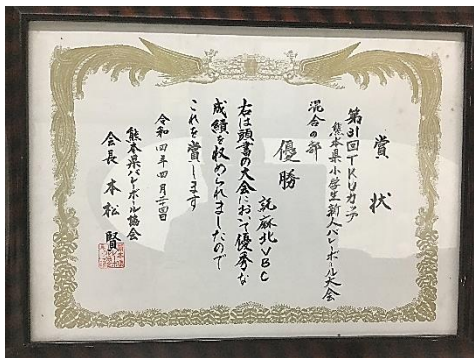 賞状
第31回TKUカップ
熊本県小学生新人バレーボール大会
混合の部
優勝
託麻北VBC
右は頭書の大会において優秀な
成績を収められましたので
これを賞します
令和四年四月二十四日
熊本県バレーボール協会
会長 本松 賢